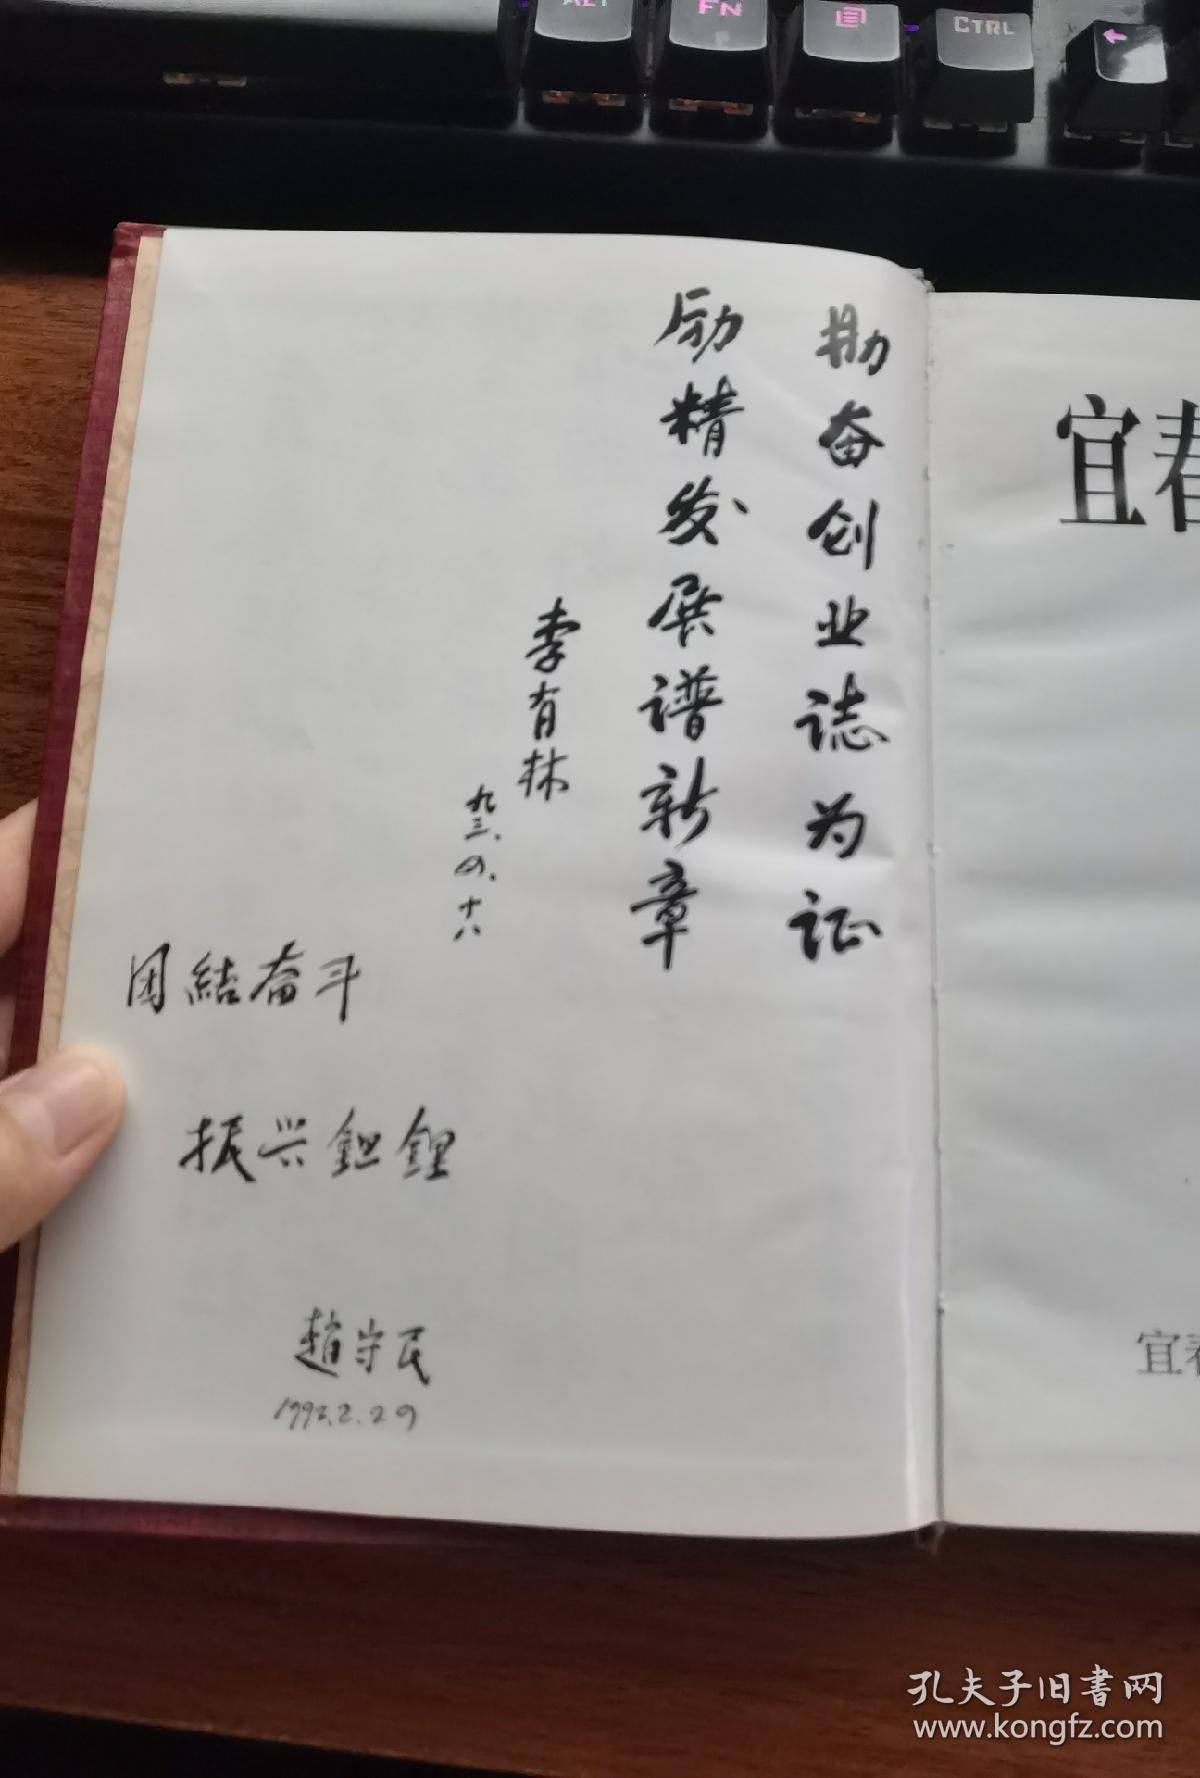 ALT
FN
CTRL
勤奋创业誌为证
励精发展谱新章
李有林
九三.四.十八
团結奋斗
振兴鉭鋰
趙守民
2.29
宜春
宜春
孔夫子旧書网
www.kongfz.com